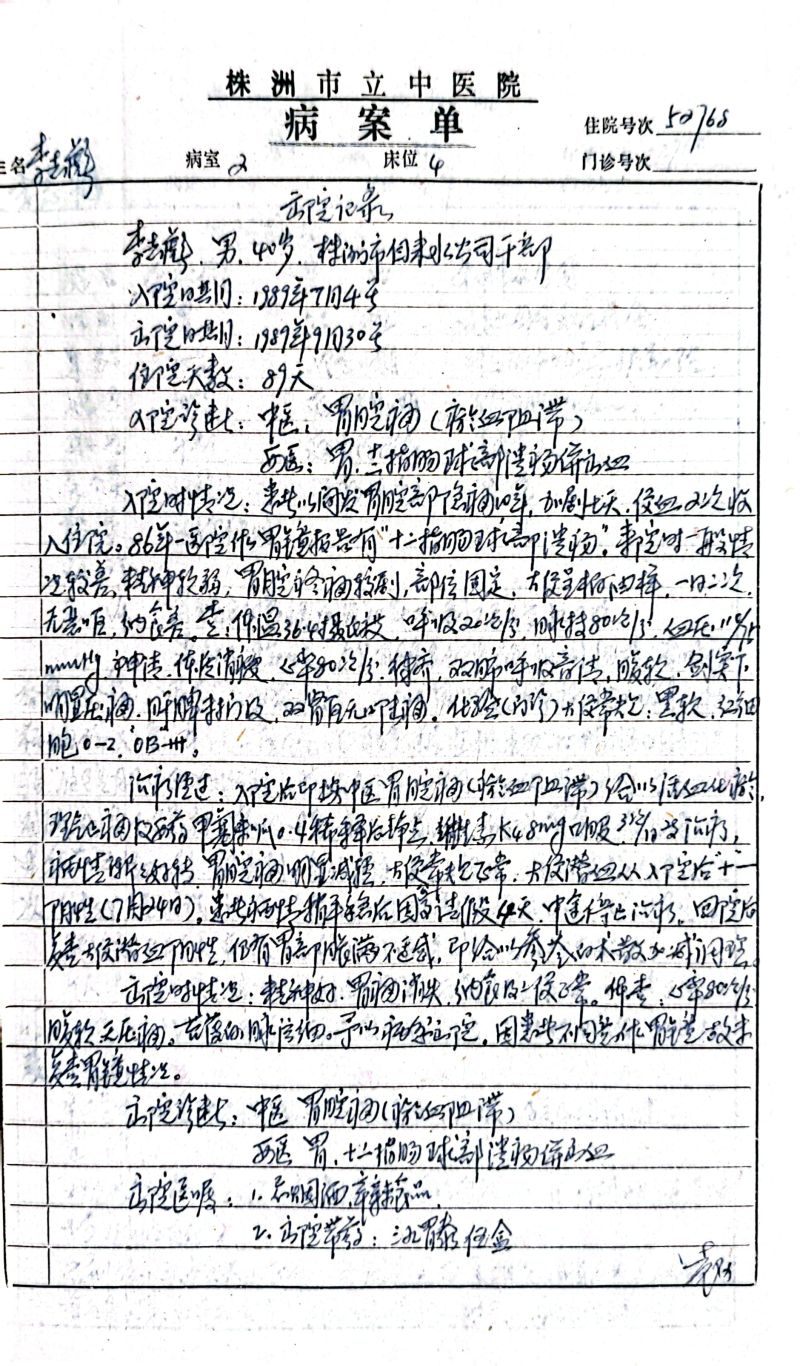 株洲市立中医院
病案单
住院号次 50768
名 病室 2 床位 4 门诊号次
出院记录
男，40岁，株洲市自来水公司干部
入院日期：1989年7月4号
出院日期：1989年9月30号
住院天数：89天
入院诊断：中医：胃脘痛（瘀血阻滞）
西医：胃、十二指肠球部溃疡併出血
入院时情况：患者以间发胃脘部隐痛10年，加剧七天，便血2次收
入住院。86年一医院作胃镜报告有“十二指肠球部溃疡”。来院时一般情
况较差，精神软弱，胃脘疼痛较剧，部位固定，大便呈柏油样，一日二次，
无恶呕，纳食差。查：体温36.4摄氏度，呼吸20次/分，脉搏80次/分，血压
mmHg，神清，体质消瘦，心率80次/分，律齐，双肺呼吸音清，腹软，剑突下
明显压痛，肝脾未扪及，双肾区无叩击痛。化验（门诊）大便常规：黑软，红细
胞0-2，OB+++。
治疗经过：入院后即按中医胃脘痛（瘀血阻滞）给以活血化瘀，
理气止痛及西药甲氰咪呱0.4稀释后静点，维生素K4 8mg口服，3次/日等治疗，
病情渐好转，胃脘痛明显减轻，大便常规正常，大便潜血从入院后
阴性（7月24日）。患者病情稍平稳后因事请假4天，中途停止治疗。回院后
复查大便潜血阴性，仍有胃部胀满不适感，即给以参苓白术散加减调理。
出院时情况：精神好，胃痛消失，纳食及二便正常。体查：心率80次/分
腹软无压痛。舌苔白脉弦细。予以病愈出院，因患者不同意作胃镜，故未
复查胃镜情况。
出院诊断：中医 胃脘痛（瘀血阻滞）
西医 胃、十二指肠球部溃疡併出血
出院医嘱：1. 忌烟酒，辛辣食品。
2. 出院带药：三九胃泰伍盒